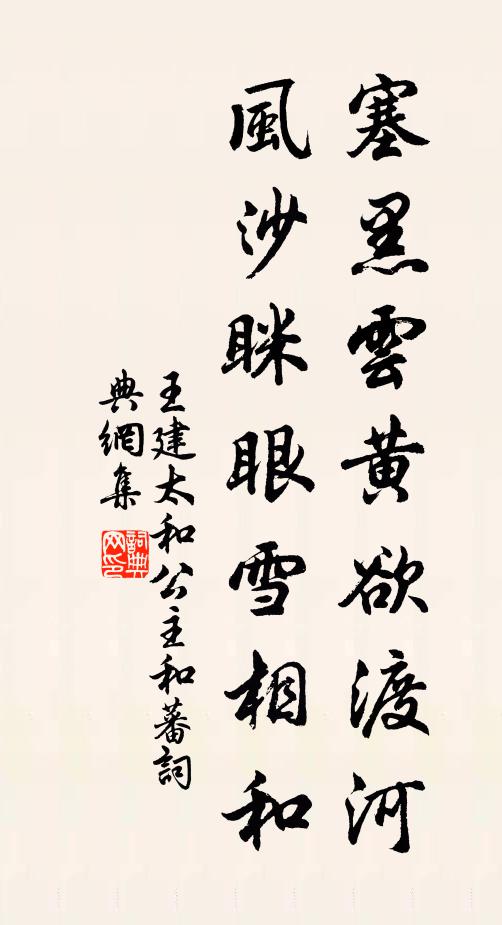 塞黑雲黃欲渡河
風沙眯眼雪相和
王建太和公主和蕃詞
典網集
詞典网印